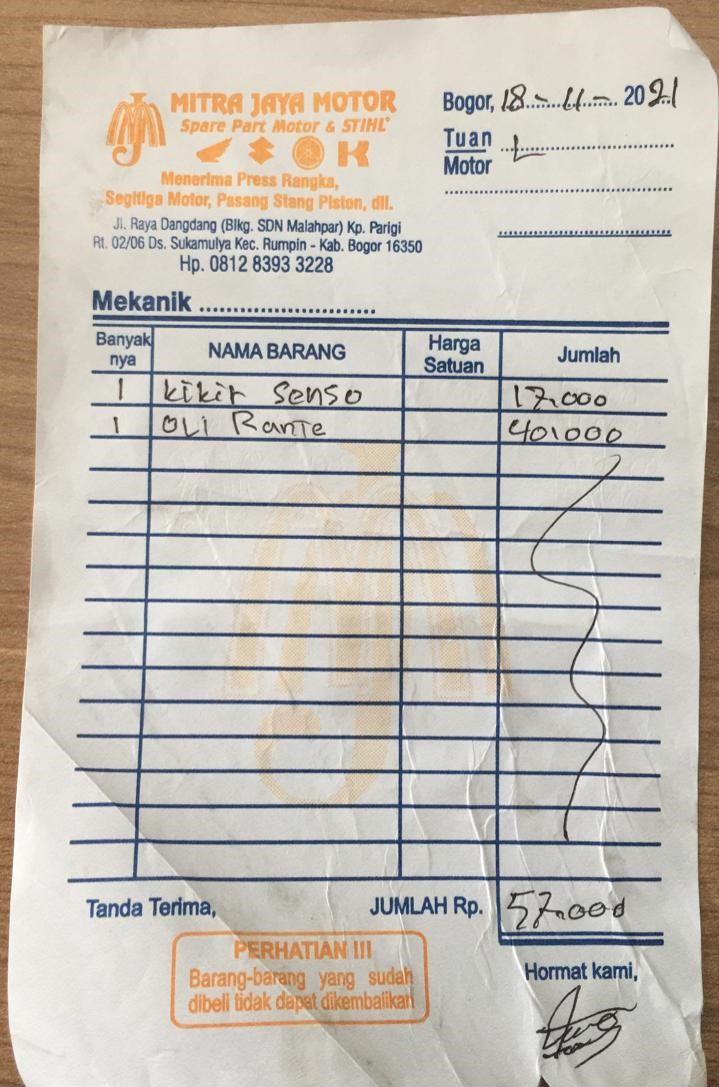 MITRA JAYA MOTOR
Spare Part Motor & STIHL®
Menerima Press Rangka,
Segitiga Motor, Pasang Stang Piston, dll.
Jl. Raya Dangdang (Blkg. SDN Malahpar) Kp. Parigi
Rt. 02/06 Ds. Sukamulya Kec. Rumpin - Kab. Bogor 16350
Hp. 0812 8393 3228
Bogor, 18 - 11 - 2021
Tuan
Motor
Mekanik
Banyak nya NAMA BARANG Harga Satuan Jumlah
1 kikir Senso 17.000
1 OLi Rante 40.000
Tanda Terima, JUMLAH Rp. 57.000
PERHATIAN !!!
Barang-barang yang sudah
dibeli tidak dapat dikembalikan
Hormat kami,